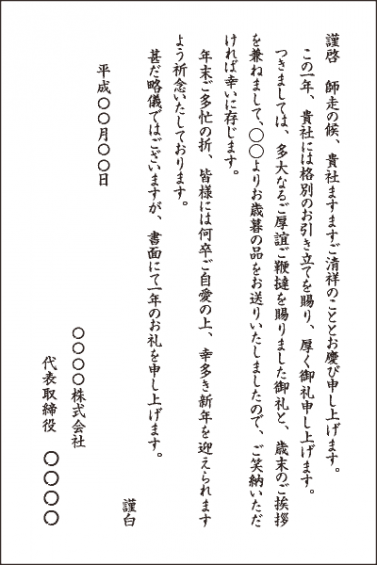 謹啓　師走の候、貴社ますますご清祥のこととお慶び申し上げます。
この一年、貴社には格別のお引き立てを賜り、厚く御礼申し上げます。
つきましては、多大なるご厚誼ご鞭撻を賜りました御礼と、歳末のご挨拶
を兼ねまして、〇〇よりお歳暮の品をお送りいたしましたので、ご笑納いただ
ければ幸いに存じます。
年末ご多忙の折、皆様には何卒ご自愛の上、幸多き新年を迎えられます
よう祈念いたしております。
甚だ略儀ではございますが、書面にて一年のお礼を申し上げます。
謹白
平成〇〇月〇〇日
〇〇〇〇株式会社
代表取締役　〇〇〇〇